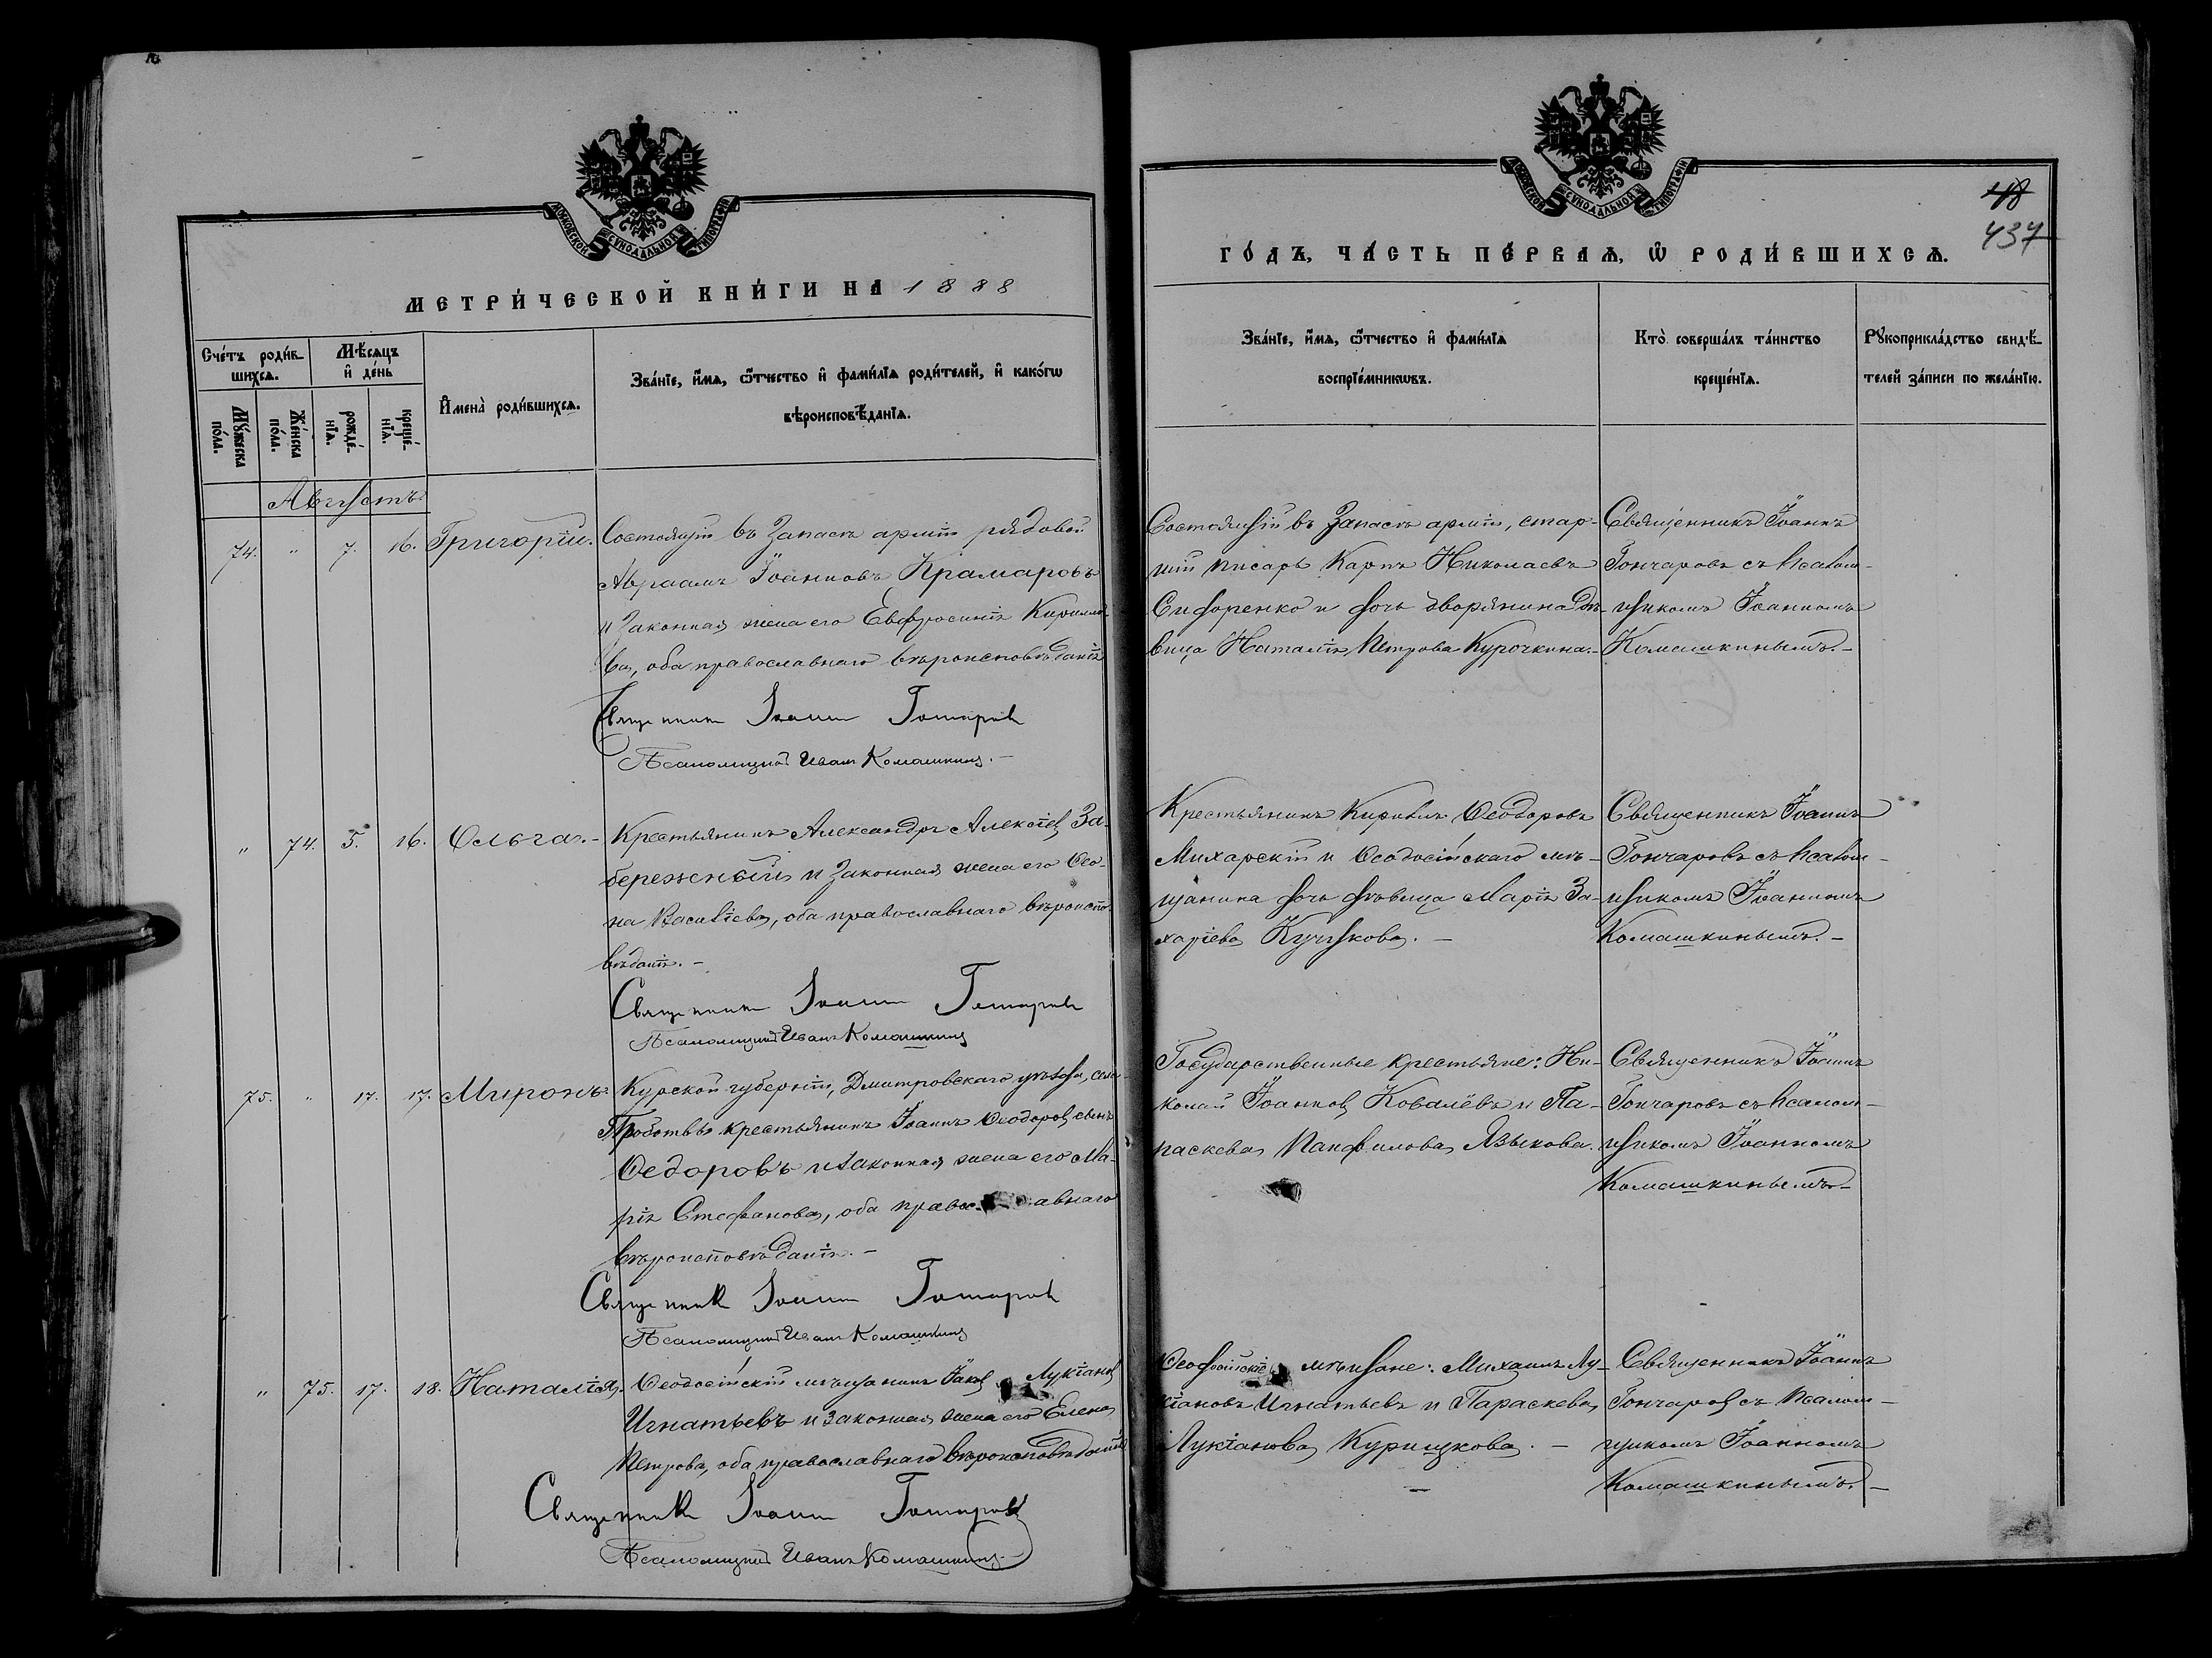 МОСКОВСКОЙ СУНОДАЛЬНОЙ ТИПОГРАФІИ
МЕТРИ́ЧЕСКОЙ КНИ́ГИ НА 1888
Сче́тъ роди́в-
шихсѧ.
Мѣ́сѧцъ
и҆ де́нь
Мꙋ́жеска
по́ла.
Же́нска
по́ла.
рожде́-
нїѧ.
креще́-
нїѧ.
И҆мена̀ роди́вшихсѧ.
Зва́нїе, и҆́мѧ, ѻ҆́тчество и҆ фами́лїѧ роди́телей, и҆ како́гѡ
вѣроисповѣ́данїѧ.
Августъ
74. " 7. 16. Григорій. Состоящій въ Запасѣ арміи рядовой
Авраамъ Іоанновъ Крамаровъ
и Законная жена его Евфросинія Кирилло-
ва, оба православнаго вѣроисповѣданія
Священникъ Іоаннъ Гончаровъ
Псаломщикъ Иванъ Комашкинъ.-
" 74. 5. 16. Ольга.- Крестьянинъ Александръ Алексіевъ За-
бережный и Законная жена его Ѳео-
на Василіева, оба православнаго вѣроиспо-
вѣданія.-
Священникъ Іоаннъ Гончаровъ
Псаломщикъ Иванъ Комашкинъ
75. " 17. 17. Миронъ. Курской губерніи, Дмитровскаго уѣзда, села
крестьянинъ Іоаннъ Ѳеодоровъ сынъ
Ѳедоровъ и законная жена его Ма-
рія Стефанова, оба православнаго
вѣроисповѣданія.-
Священникъ Іоаннъ Гончаровъ
Псаломщикъ Иванъ Комашкинъ
" 75. 17. 18. Наталія. Ѳеодосійскій мѣщанинъ Іаковъ Лукіановъ
Игнатьевъ и законная жена его Елена
Петрова, оба православнаго вѣроисповѣданія
Священникъ Іоаннъ Гончаровъ
Псаломщикъ Иванъ Комашкинъ
МОСКОВСКОЙ СУНОДАЛЬНОЙ ТИПОГРАФІИ
437
ГО́ДЪ, ЧА́СТЬ ПЕ́РВАѦ, Ѡ҆ РОДИ́ВШИХСѦ.
Зва́нїе, и҆́мѧ, ѻ҆́тчество и҆ фами́лїѧ
воспрїе́мникѡвъ.
Кто̀ соверша́лъ та́инство
креще́нїѧ.
Рꙋкоприкла́дство свидѣ́-
телей за́писи по жела́нїю.
Состоящій въ Запасѣ арміи, стар-
шій писарь Карпъ Николаевъ
Сифоренко и дочь дворянина дѣ-
вица Наталія Петрова Курочкина.-
Священникъ Іоаннъ
Гончаровъ съ Псалом-
щикомъ Іоанномъ
Комашкинымъ.-
Крестьянинъ Кириллъ Ѳеодоровъ
Михарскій и Ѳеодосійскаго мѣ-
щанина дочь дѣвица Марія За-
харіева Кучукова.-
Священникъ Іоаннъ
Гончаровъ съ Псалом-
щикомъ Іоанномъ
Комашкинымъ.-
Государственные крестьяне: Ни-
колай Іоанновъ Ковалёвъ и Па-
раскева Панфилова Языкова.
Священникъ Іоаннъ
Гончаровъ съ Псалом-
щикомъ Іоанномъ
Комашкинымъ-
Ѳеодосійскіе мѣщане: Михаилъ Лу-
кіановъ Игнатьевъ и Параскева
Лукіанова Курицкова.-
Священникъ Іоаннъ
Гончаровъ съ Псалом-
щикомъ Іоанномъ
Комашкинымъ.-